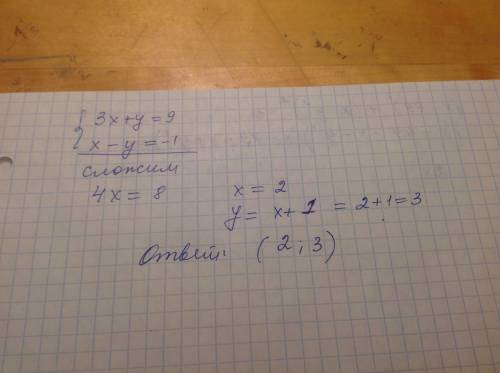 { 3x+y=9
x-y=-1
сложим
4x=8
x=2
y=x+1=2+1=3
Ответ: (2;3)